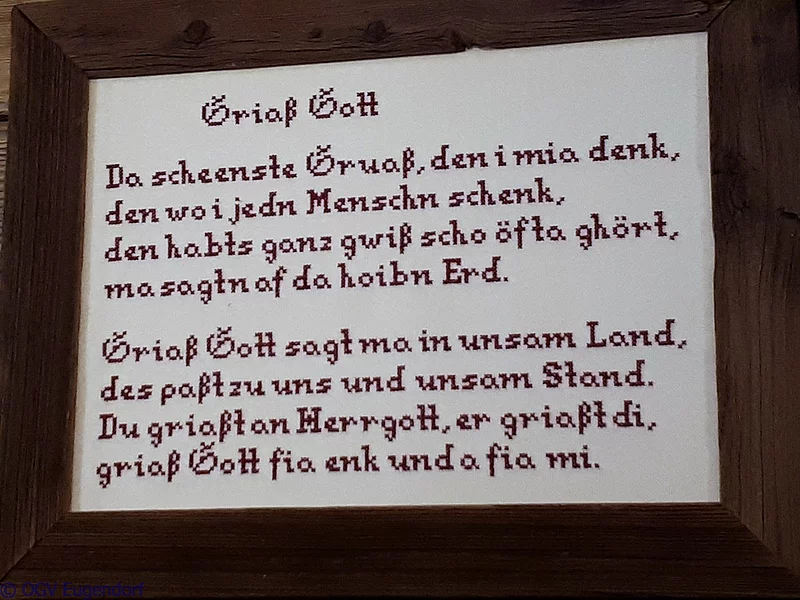 Griaß Gott
Da scheenste Gruaß, den i mia denk,
den wo i jedn Menschn schenk,
den habts ganz gwiß scho öfta ghört,
ma sagtn af da hoibn Erd.
Griaß Gott sagt ma in unsam Land,
des paßt zu uns und unsam Stand.
Du griaßt an Herrgott, er griaßt di,
griaß Gott fia enk und a fia mi.